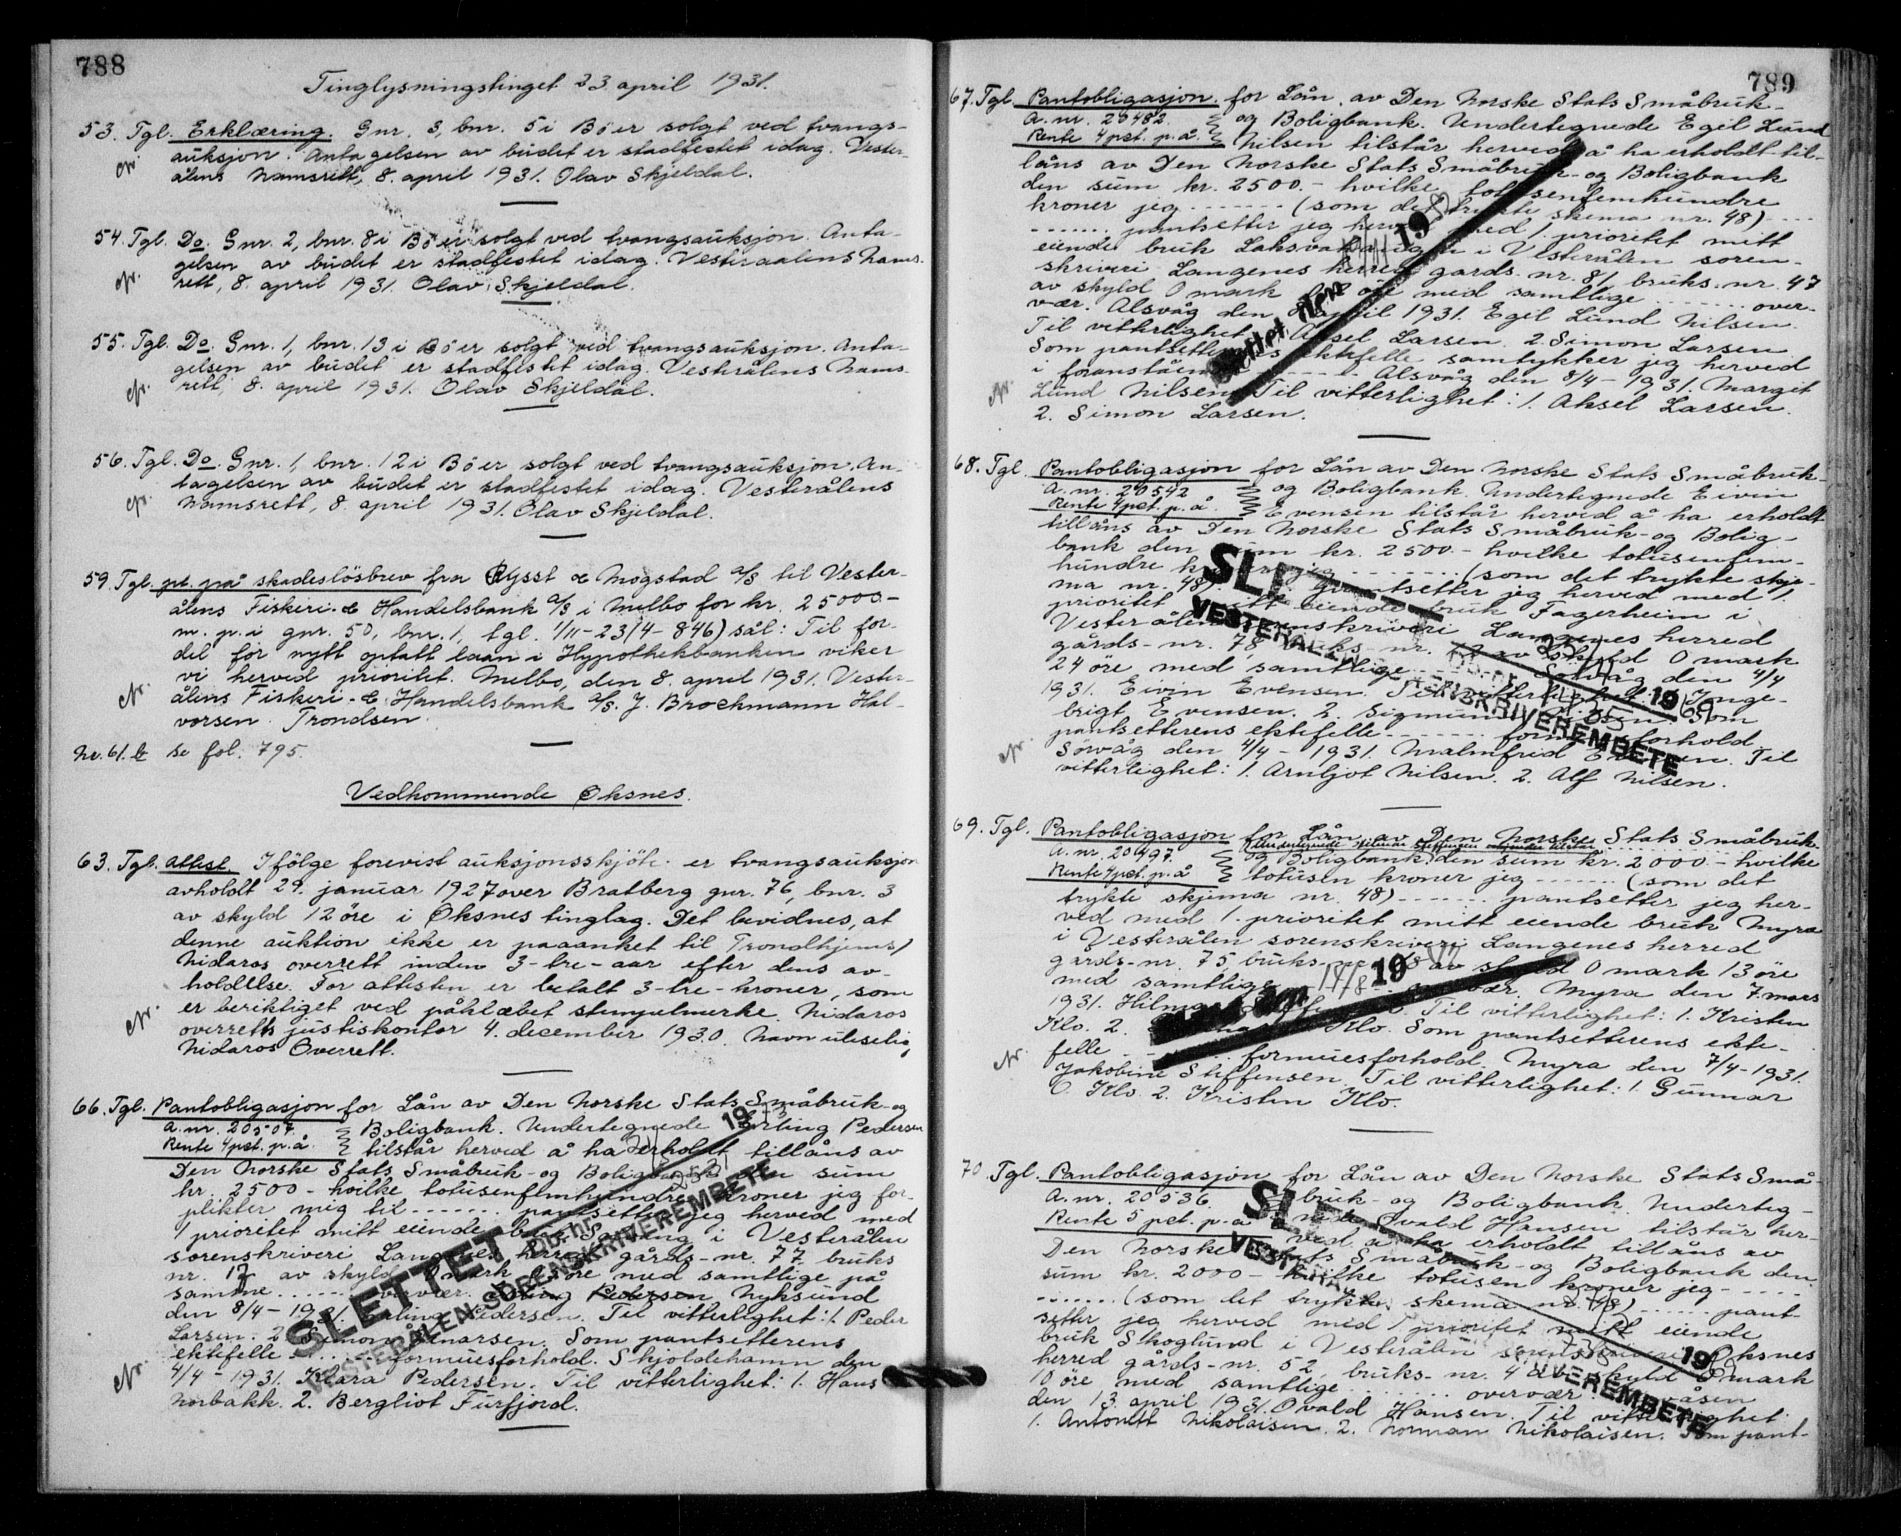 788
Tinglysningstinget 23 april 1931.
53. Tgl. Erklæring. Gnr. 3, bnr. 5 i Bö er solgt ved tvangs-
auksjon. Antagelsen av budet er stadfestet idag. Vester-
ålens Namsrett, 8. april 1931. Olav Skjeldal.
54. Tgl. Do. Gnr. 2, bnr. 8 i Bö er solgt ved tvangsauksjon. Anta-
gelsen av budet er stadfestet idag. Vesteraalens Nams-
rett, 8. april 1931. Olav Skjeldal.
55. Tgl. Do. Gnr. 1, bnr. 13 i Bö er solgt ved tvangsauksjon. Anta-
gelsen av budet er stadfestet idag. Vesterålens Nams-
rett, 8. april 1931. Olav Skjeldal.
56. Tgl. Do. Gnr. 1, bnr. 12 i Bö er solgt ved tvangsauksjon. An-
tagelsen av budet er stadfestet idag. Vesterålens
Namsrett, 8. april 1931. Olav Skjeldal.
59. Tgl. pt. på skadeslösbrev fra Rysst & Mogstad a/s til Vester-
ålens Fiskeri- & Handelsbank a/s i Melbo for kr. 25000.-
m. p. i gnr. 50, bnr. 1, tgl. 1/11-23/4-846) sål: Til for-
del for nytt optatt laan i Hypothekbanken viker
vi herved prioritet. Melbo, den 8. april 1931. Vester-
ålens Fiskeri- & Handelsbank a/s. J. Brochmann Hal-
vorsen. Trondsen.
Nr. 61. b se fol. 795.
Vedkommende Øksnes.
63. Tgl. Attest. Ifölge forevist auksjonsskjöte er tvangsauksjon
avholdt 29. januar 1927 over Bratberg gnr. 76, bnr. 3
av skyld 12 öre i Øksnes tinglag. Det bevidnes, at
denne auktion ikke er paaanket til Trondhjems/
Nidaros overrett inden 3-tre-aar efter dens av-
holdelse. For attesten er betalt 3-tre-kroner, som
er beriktiget ved påklæbet stempelmerke. Nidaros
overretts justiskontor 4. december 1930. Navn uleselig,
Nidaros Overrett.
66. Tgl. Pantobligasjon for Lån av Den Norske Stats Småbruk- og
A. nr. 20507. Boligbank. Undertegnede Erling Pedersen
Rente 4 pct. p. å. tilstår herved å ha erholdt tillåns av
Den Norske Stats Småbruk- og Boligbank den sum
kr. 2500 - hvilke totusenfemhundre kroner jeg for-
plikter mig til ....... pantsetter jeg herved med
1 prioritet mitt eiende bruk i Vesterålen
sorenskriveri Langenes herred gårds-nr. 77. bruks
nr. 17 av skyld 0 mark öre med samtlige på
samme ....... overvær. Erling Pedersen Nyksund
den 8/4-1931. Erling Pedersen. Til vitterlighet: 1. Peder
Larsen. 2. Simon Amarsen. Som pantsetterens
ektefelle ....... formuesforhold. Skjoldehamn den
4/4-1931. Klara Pedersen. Til vitterlighet: 1. Hans
Norbakk. 2. Bergliot Furfjord.
SLETTET
VESTERÅLEN SORENSKRIVEREMBETE
789
67. Tgl. Pantobligasjon for Lån av Den Norske Stats Småbruk-
A. nr. 20482 og Boligbank. Undertegnede Egil Lund
Rente 4 pct. p. å. Nilsen tilstår herved å ha erholdt til-
låns av Den Norske Stats Småbruk- og Boligbank
den sum kr. 2500.- hvilke totusenfemhundre
kroner jeg ....... (som det trykte skema nr. 48) ....
....... pantsetter jeg herved med 1. prioritet mitt
eiende bruk i Vesterålen soren-
skriveri Langenes herred gards. nr. 81 bruks. nr. 47
av skyld 0 mark öre med samtlige ....... over-
vær. Alsvåg den april 1931. Egil Lund Nilsen.
Til vitterlighet: 1. Aksel Larsen. 2. Simon Larsen.
Som pantsetterens ektefelle samtykker jeg herved
i foranstående ....... Alsvåg den 8/4-1931. Marget
Lund Nilsen. Til vitterlighet: 1. Aksel Larsen.
2. Simon Larsen.
Slettet den 19
68. Tgl. Pantobligasjon for Lån av Den Norske Stats Småbruk-
A. nr. 20542 og Boligbank. Undertegnede Eivin
Rente 4 pct. p. å. Evensen tilstår herved å ha erholdt
tillåns av Den Norske Stats Småbruk- og Bolig-
bank den sum kr. 2500.- hvilke totusenfem-
hundre kroner jeg ....... (som det trykte skje-
ma nr. 48) ....... pantsetter jeg herved med 1.
prioritet mitt eiende bruk Fagerheim i
Vesterålen sorenskriveri Langenes herred
gårds-nr. 78 bruks-nr. av skyld 0 mark
24 öre med samtlige ....... den 4/4
1931. Eivin Evensen. Til vitterlighet: 1. Inge-
brigt Evensen. 2. Sigmund Nilsen. Som
pantsetterens ektefelle ....... formuesforhold.
Sörvåg den 4/4-1931. Malmfrid Evensen. Til
vitterlighet: 1. Arnljot Nilsen. 2. Alf Nilsen.
69. Tgl. Pantobligasjon for Lån av Den Norske Stats Småbruk-
A. nr. 20497. og Boligbank den sum kr. 2000 - hvilke
Rente 4 pct. p. å totusen kroner jeg ....... (som det
trykte skjema nr. 48) ....... pantsetter jeg her-
ved med 1. prioritet mitt eiende bruk Myra
i Vesterålen sorenskriveri Langenes herred
gårds-nr. 75 bruks-nr. av skyld 0 mark 13 öre
med samtlige ....... overvær. Myra den 7. mars
1931. Hilmar Steffensen. Til vitterlighet: 1. Kristen
Klo. 2. Klo. Som pantsetterens ekte-
felle ....... formuesforhold. Myra den 7/4-1931.
Jakobine Steffensen. Til vitterlighet: 1. Gunnar
C. Klo. 2. Kristen Klo.
70. Tgl. Pantobligasjon for Lån av Den Norske Stats Små-
A. nr. 20536. bruk- og Boligbank. Underteg-
Rente 5 pct. p. a nede Ovald Hansen tilstår her-
ved å ha erholdt tillåns av
Den Norske Stats Småbruk- og Boligbank den
sum kr. 2000 - hvilke totusen kroner jeg ......
....... (som det trykte skema nr. 48) ....... pant-
setter jeg herved med 1 prioritet mitt eiende
bruk Skoglund i Vesterålen sorenskriveri Øksnes
herred gårds-nr. 52, bruks-nr. 4 av skyld 0 mark
10 öre med samtlige ....... overvær.
den 13. april 1931. Ovald Hansen. Til vitterlighet:
1. Antonett Nikolaisen. 2. Norman Nikolaisen. Som pant-